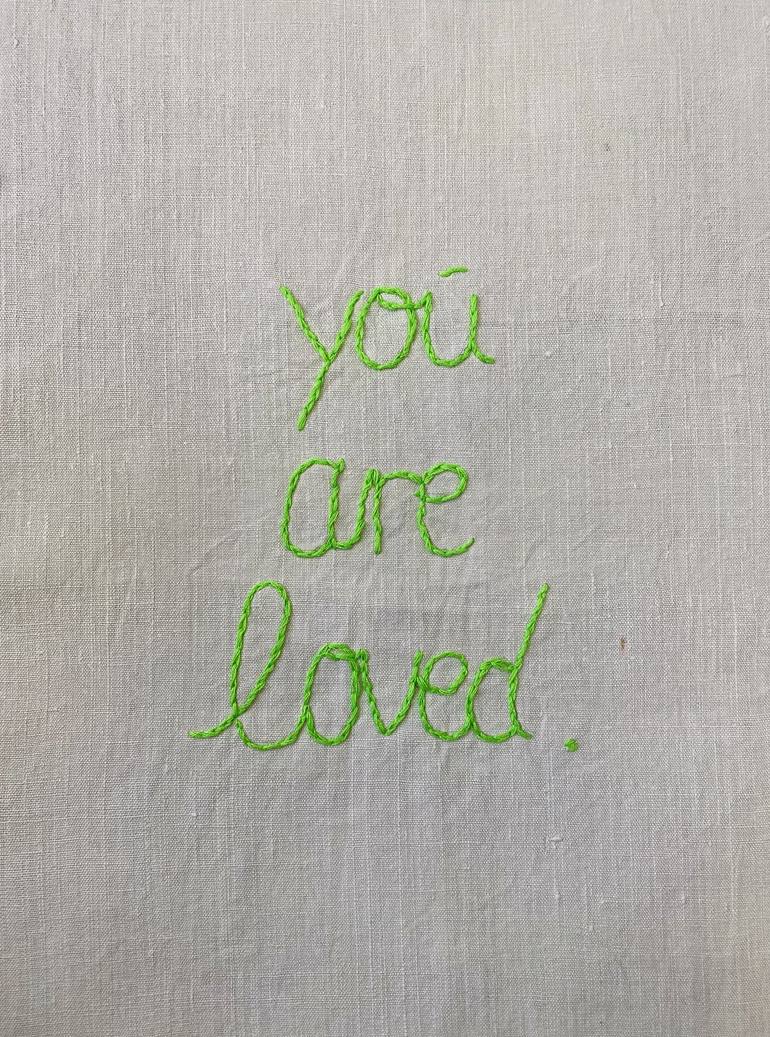 yoū
are
loved.